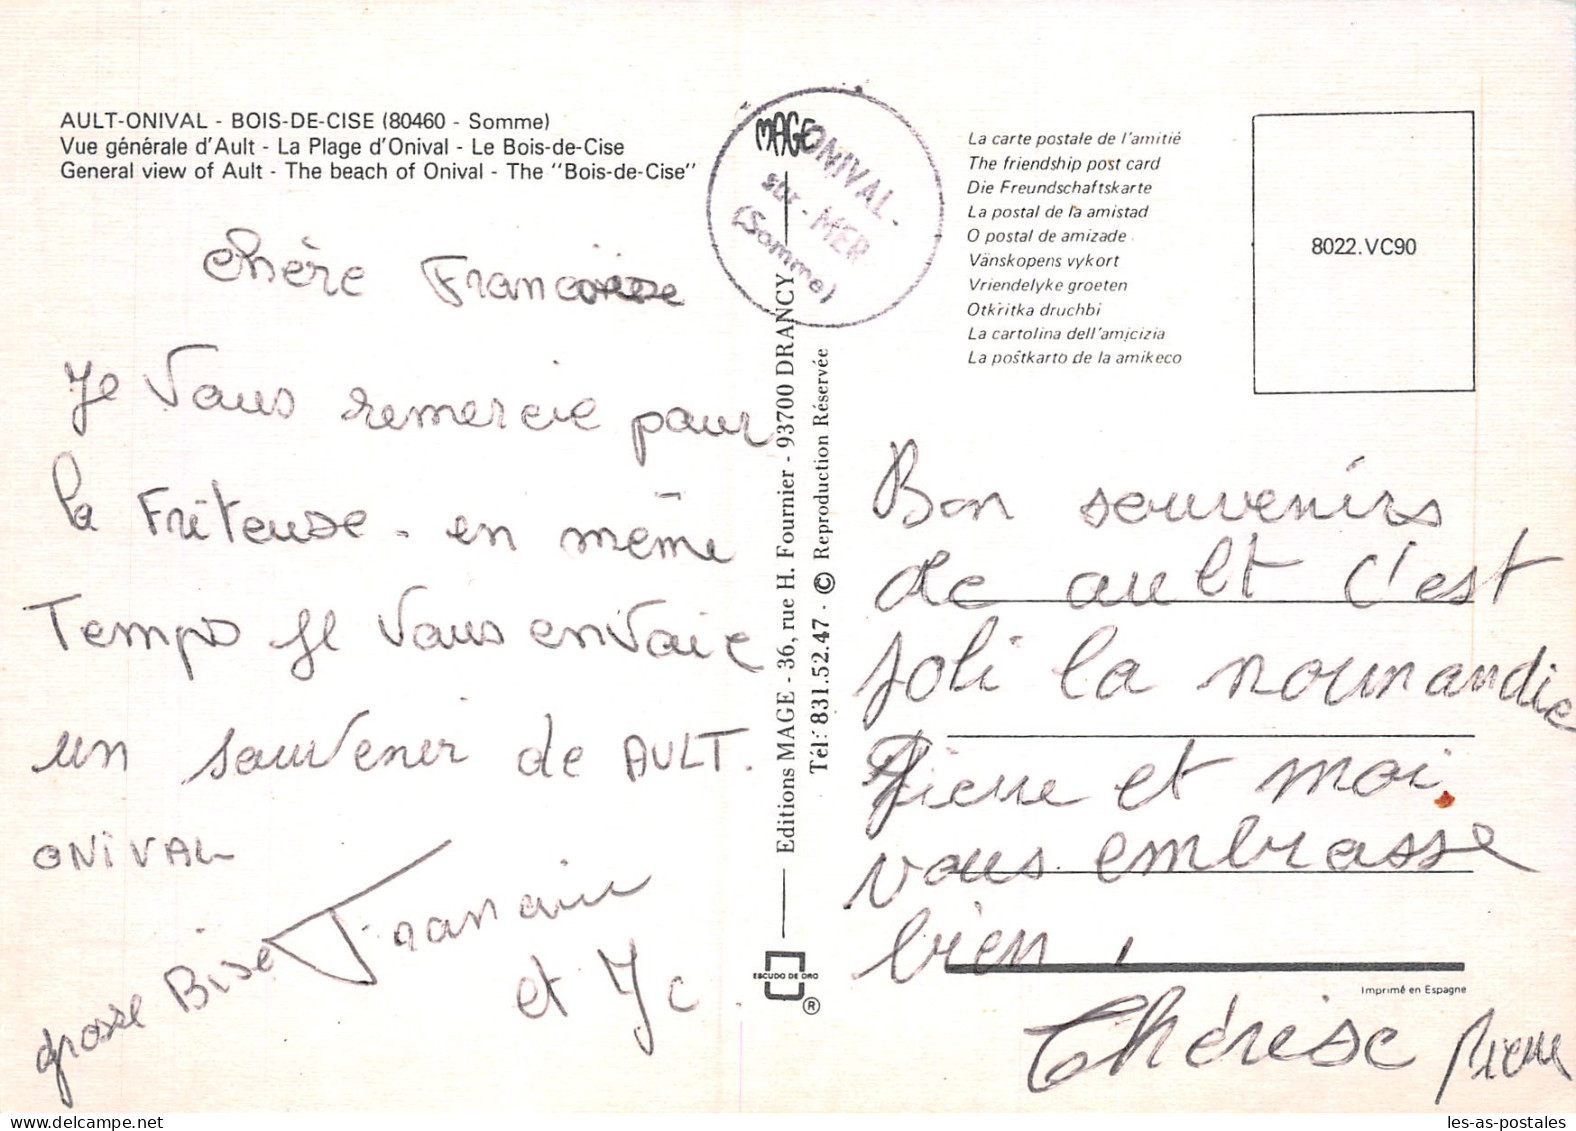 AULT-ONIVAL - BOIS-DE-CISE (80460 - Somme)
Vue générale d'Ault - La Plage d'Onival - Le Bois-de-Cise
General view of Ault - The beach of Onival - The "Bois-de-Cise"
chère
Je vous remercie pour
la Friteuse - en même
Temps Je vous envoie
un souvenir de AULT.
ONIVAL
grosse Bise
et Jc
MAGE
ONIVAL-
sur-MER
(Somme)
Editions MAGE - 36, rue H. Fournier - 93700 DRANCY
Tél: 831.52.47 - © Reproduction Réservée
ESCUDO DE ORO
®
La carte postale de l'amitié
The friendship post card
Die Freundschaftskarte
La postal de la amistad
O postal de amizade
Vänskopens vykort
Vriendelyke groeten
Otkritka druchbi
La cartolina dell'amicizia
La poŝtkarto de la amikeco
8022.VC90
Bon souvenirs
de ault c'est
joli la nourmandie
Pierre et moi
vous embrasse
bien,
Imprimé en Espagne
Thérèse Pierre
les-as-postales